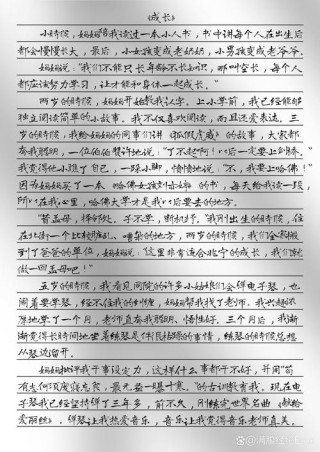 《成长》
小时候，妈妈给我读过一本小人书，书中讲每个人在出生后
都会慢慢长大，最后，小女孩变成老奶奶，小男孩变成老爷爷。
妈妈说："我们不能只长年龄不长知识，那叫空长，每个人
都应该努力学习，让才能和身体一起成长。"
两岁的时候，妈妈开始教我认字。上小学前，我已经能够
独立阅读简单的小故事。我不仅喜欢阅读，而且还爱表达。三
岁的时候，我给妈妈的同事们讲《狐假虎威》的故事，大家都
夸我聪明，一位伯伯赞许地说："了不起啊！以后一定要上剑桥。"
我觉得他小瞧了自己，一跺小脚，愤愤地说："不，我要上哈佛！"
因为妈妈买了一本《哈佛女孩刘亦婷》的书，每天给我读一段，
所以在我心里，哈佛大学才是我以后要去的地方。
"昔孟母，择邻处，子不学，断机杼。"我刚出生的时候，住
在北街一个比较脏乱、嘈杂的地方，两岁的时候，我们全家搬
到了爸爸的单位，妈妈说："这里非常适合北宁的成长，我们就
做一回孟母吧！"
五岁的时候，我看见同院的许多小姑娘们会弹电子琴，也
闹着要学琴，经不住我的纠缠，妈妈帮我找了老师。我兴趣浓
厚地学了一个月，老师直夸我聪明、悟性好。三个月后，我渐
渐觉得长时间地坐着练琴是件很枯燥的事情，练琴的时候总想
从琴边溜开。
妈妈批评我干事没主力，这样什么事都干不好，并用"前
有古何须废寝忘食，最无益一曝十寒。"的古训教育我。现在电
子琴我已经坚持弹了三年多，前不久，刚练完世界名曲《献给
爱丽丝》。弹琴让我热爱音乐，音乐让我觉得音乐老师真美。